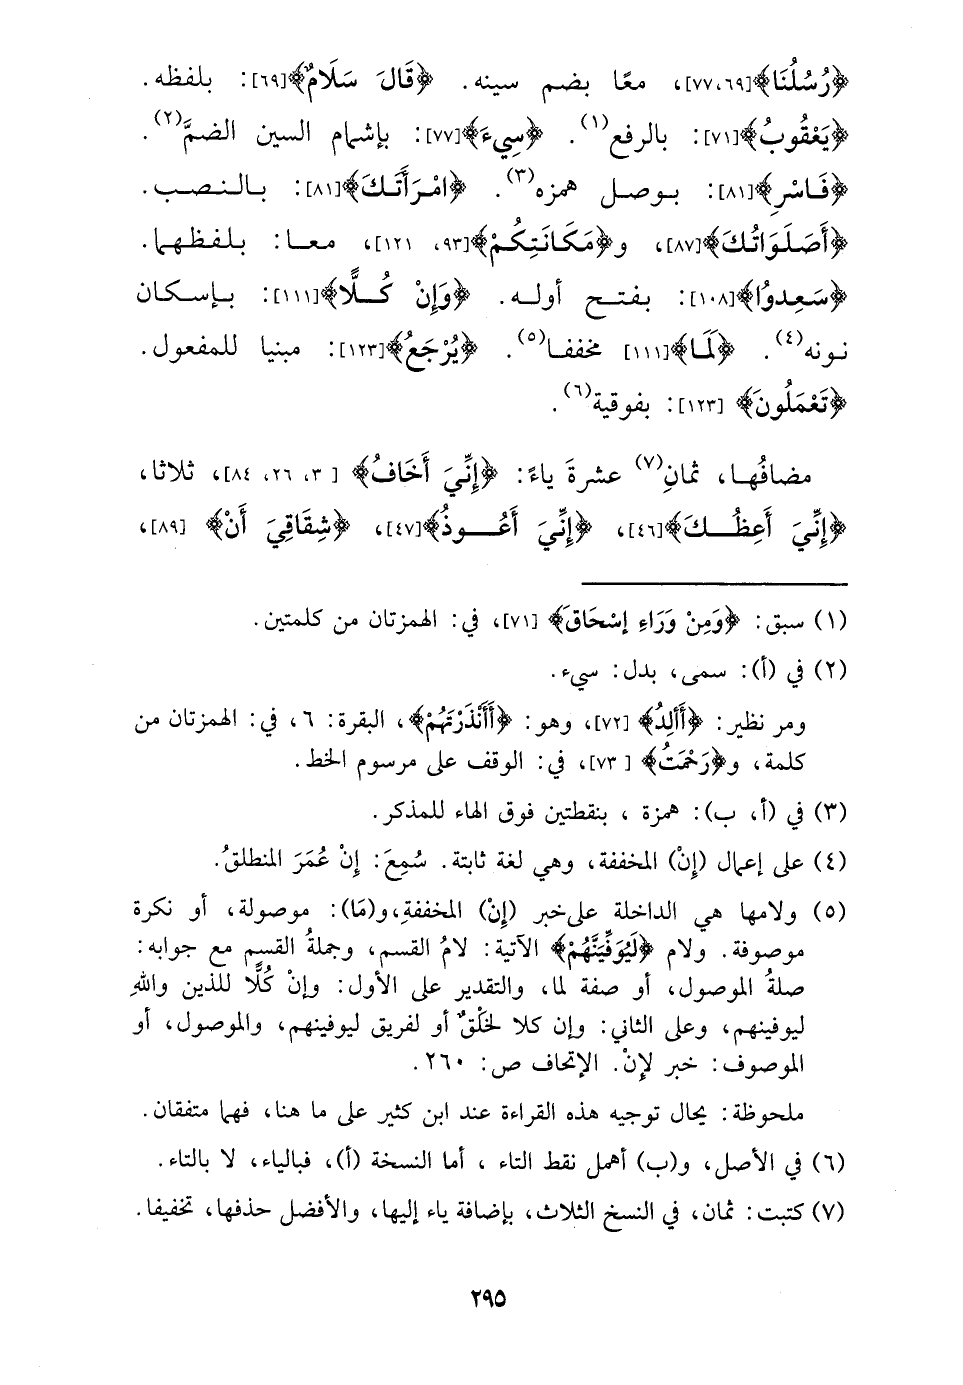 ﴿رُسُلُنَا﴾[٧٧،٦٩]، معًا بضم سينه. ﴿قَالَ سَلَامٌ﴾[٦٩]: بلفظه.
﴿يَعْقُوبُ﴾[٧١]: بالرفع(١). ﴿سِيءَ﴾[٧٧]: بإشمام السين الضمَّ(٢).
﴿فَاسْرِ﴾[٨١]: بوصل همزه(٣). ﴿امْرَأَتَكَ﴾[٨١]: بالنصب.
﴿أَصَلَوَاتُكَ﴾[٨٧]، و﴿مَكَانَتِكُمْ﴾[٩٣، ١٢١]، معا: بلفظهما.
﴿سَعِدوُا﴾[١٠٨]: بفتح أوله. ﴿وَإِنْ كُلًّا﴾[١١١]: بإسكان
نونه(٤). ﴿لَمَا﴾[١١١] مخففا(٥). ﴿يُرْجَعُ﴾[١٢٣]: مبنيا للمفعول.
﴿تَعْمَلُونَ﴾ [١٢٣]: بفوقية(٦).
مضافُها، ثمانِ(٧) عشرةَ ياءً: ﴿إِنِّيَ أَخَافُ﴾ [٣، ٢٦، ٨٤]، ثلاثا،
﴿إِنِّيَ أَعِظُكَ﴾[٤٦]، ﴿إِنِّيَ أَعُوذُ﴾[٤٧]، ﴿شِقَاقِيَ أَنْ﴾ [٨٩]،
(١) سبق: ﴿وَمِنْ وَرَاءِ إِسْحَاقَ﴾ [٧١]، في: الهمزتان من كلمتين.
(٢) في (أ): سمى، بدل: سيء.
ومر نظير: ﴿أَأَلِدُ﴾ [٧٢]، وهو: ﴿أَأَنْذَرْتَهُمْ﴾، البقرة: ٦، في: الهمزتان من
كلمة، و﴿رَحْمَتُ﴾ [٧٣]، في: الوقف على مرسوم الخط.
(٣) في (أ، ب): همزة ، بنقطتين فوق الهاء للمذكر.
(٤) على إعمال (إِنْ) المخففة، وهي لغة ثابتة. سُمِعَ: إِنْ عُمَرَ المنطلقُ.
(٥) ولامها هي الداخلة على خبر (إِنْ) المخففةِ، و(مَا): موصولة، أو نكرة
موصوفة. ولام ﴿لَيُوَفِّيَنَّهُمْ﴾ الآتية: لامُ القسم، وجملةُ القسم مع جوابه:
صلةُ الموصول، أو صفة لما، والتقدير على الأول: وإنْ كُلًّا للذين واللهِ
ليوفينهم، وعلى الثاني: وإن كلا لخَلْقٌ أو لفريق ليوفينهم، والموصول، أو
الموصوف: خبر لإِنْ. الإتحاف ص: ٢٦٠.
ملحوظة: يحال توجيه هذه القراءة عند ابن كثير على ما هنا، فهما متفقان.
(٦) في الأصل، و(ب) أهمل نقط التاء ، أما النسخة (أ)، فبالياء، لا بالتاء.
(٧) كتبت: ثمان، في النسخ الثلاث، بإضافة ياء إليها، والأفضل حذفها، تخفيفا.
٢٩٥